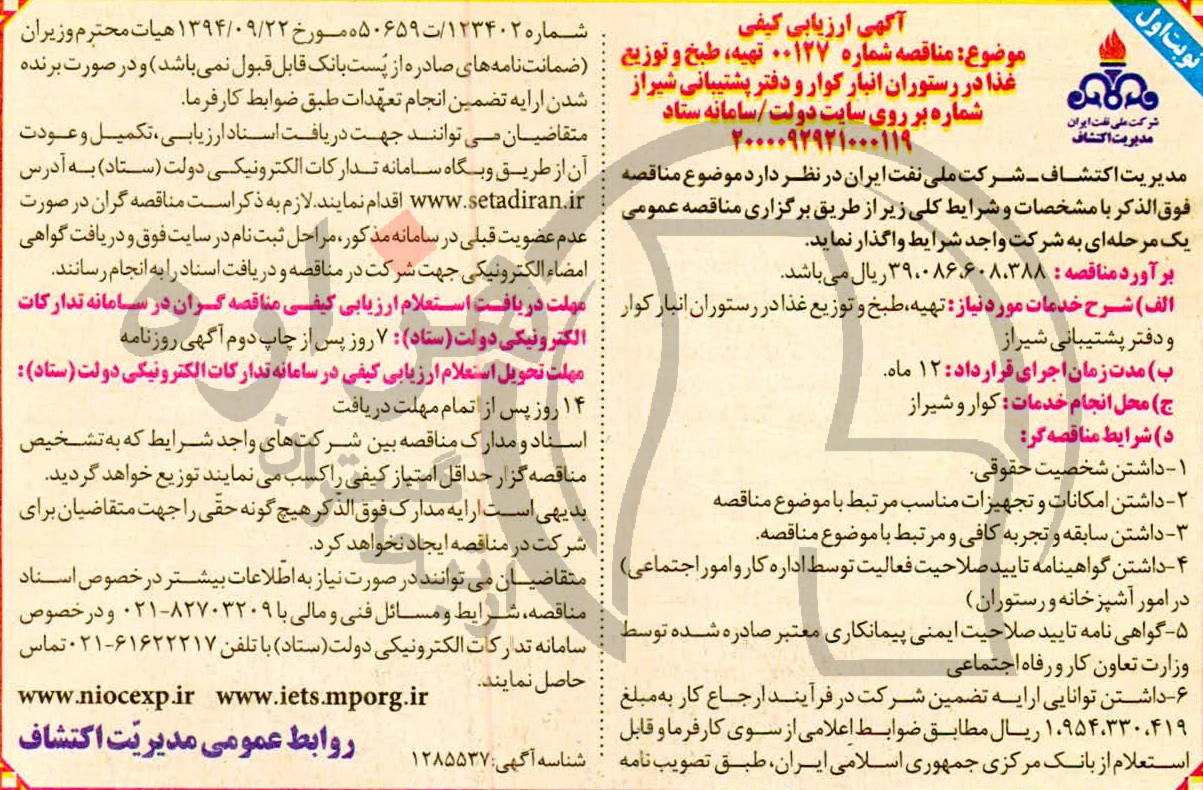 نوبت اول
شرکت ملی نفت ایران
مدیریت اکتشاف
آگهی ارزیابی کیفی
موضوع: مناقصه شماره ۰۰۱۲۷ تهیه، طبخ و توزیع
غذا در رستوران انبار کوار و دفتر پشتیبانی شیراز
شماره بر روی سایت دولت/سامانه ستاد
۲۰۰۰۰۹۲۹۲۱۰۰۰۱۱۹
مدیریت اکتشاف - شرکت ملی نفت ایران در نظر دارد موضوع مناقصه
فوق‌الذکر با مشخصات و شرایط کلی زیر از طریق برگزاری مناقصه عمومی
یک مرحله‌ای به شرکت واجد شرایط واگذار نماید.
برآورد مناقصه: ۳۹،۰۸۶،۶۰۸،۳۸۸ ریال می‌باشد.
الف) شرح خدمات مورد نیاز: تهیه، طبخ و توزیع غذا در رستوران انبار کوار
و دفتر پشتیبانی شیراز
ب) مدت زمان اجرای قرارداد: ۱۲ ماه.
ج) محل انجام خدمات: کوار و شیراز
د) شرایط مناقصه‌گر:
۱-داشتن شخصیت حقوقی.
۲-داشتن امکانات و تجهیزات مناسب مرتبط با موضوع مناقصه
۳-داشتن سابقه و تجربه کافی و مرتبط با موضوع مناقصه.
۴-داشتن گواهینامه تایید صلاحیت فعالیت توسط اداره کار و امور اجتماعی)
در امور آشپزخانه و رستوران)
۵-گواهی نامه تایید صلاحیت ایمنی پیمانکاری معتبر صادره شده توسط
وزارت تعاون کار و رفاه اجتماعی
۶-داشتن توانایی ارایه تضمین شرکت در فرآیند ارجاع کار به‌مبلغ
۱،۹۵۴،۳۳۰،۴۱۹ ریال مطابق ضوابط اعلامی از سوی کارفرما و قابل
استعلام از بانک مرکزی جمهوری اسلامی ایران، طبق تصویب نامه
شماره ۱۲۳۴۰۲/ت۵۰۶۵۹ه مورخ ۱۳۹۴/۰۹/۲۲ هیات محترم وزیران
(ضمانت‌نامه‌های صادره از پُست بانک قابل قبول نمی‌باشد) و در صورت برنده
شدن ارایه تضمین انجام تعهّدات طبق ضوابط کارفرما.
متقاضیان می توانند جهت دریافت اسناد ارزیابی، تکمیل و عودت
آن از طریق وبگاه سامانه تدارکات الکترونیکی دولت (ستاد) به آدرس
www.setadiran.ir اقدام نمایند. لازم به ذکر است مناقصه گران در صورت
عدم عضویت قبلی در سامانه مذکور، مراحل ثبت نام در سایت فوق و دریافت گواهی
امضاء الکترونیکی جهت شرکت در مناقصه و دریافت اسناد را به انجام رسانند.
مهلت دریافت استعلام ارزیابی کیفی مناقصه گران در سامانه تدارکات
الکترونیکی دولت (ستاد): ۷ روز پس از چاپ دوم آگهی روزنامه
مهلت تحویل استعلام ارزیابی کیفی در سامانه تدارکات الکترونیکی دولت (ستاد):
۱۴ روز پس از اتمام مهلت دریافت
اسناد و مدارک مناقصه بین شرکت‌های واجد شرایط که به تشخیص
مناقصه گزار حداقل امتیاز کیفی را کسب می نمایند توزیع خواهد گردید.
بدیهی است ارایه مدارک فوق‌الذّکر هیچ گونه حقّی را جهت متقاضیان برای
شرکت در مناقصه ایجاد نخواهد کرد.
متقاضیان می توانند در صورت نیاز به اطّلاعات بیشتر در خصوص اسناد
مناقصه، شرایط و مسائل فنی و مالی با ۸۲۷۰۳۲۰۹-۰۲۱ و در خصوص
سامانه تدارکات الکترونیکی دولت (ستاد) با تلفن ۶۱۶۲۲۲۱۷-۰۲۱ تماس
حاصل نمایند.
www.niocexp.ir www.iets.mporg.ir
روابط عمومی مدیریّت اکتشاف
شناسه آگهی: ۱۲۸۵۵۳۷
هزاره